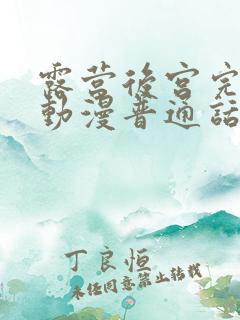 露营後宫完
動漫普通話
丁良恒
未经同意禁止转载